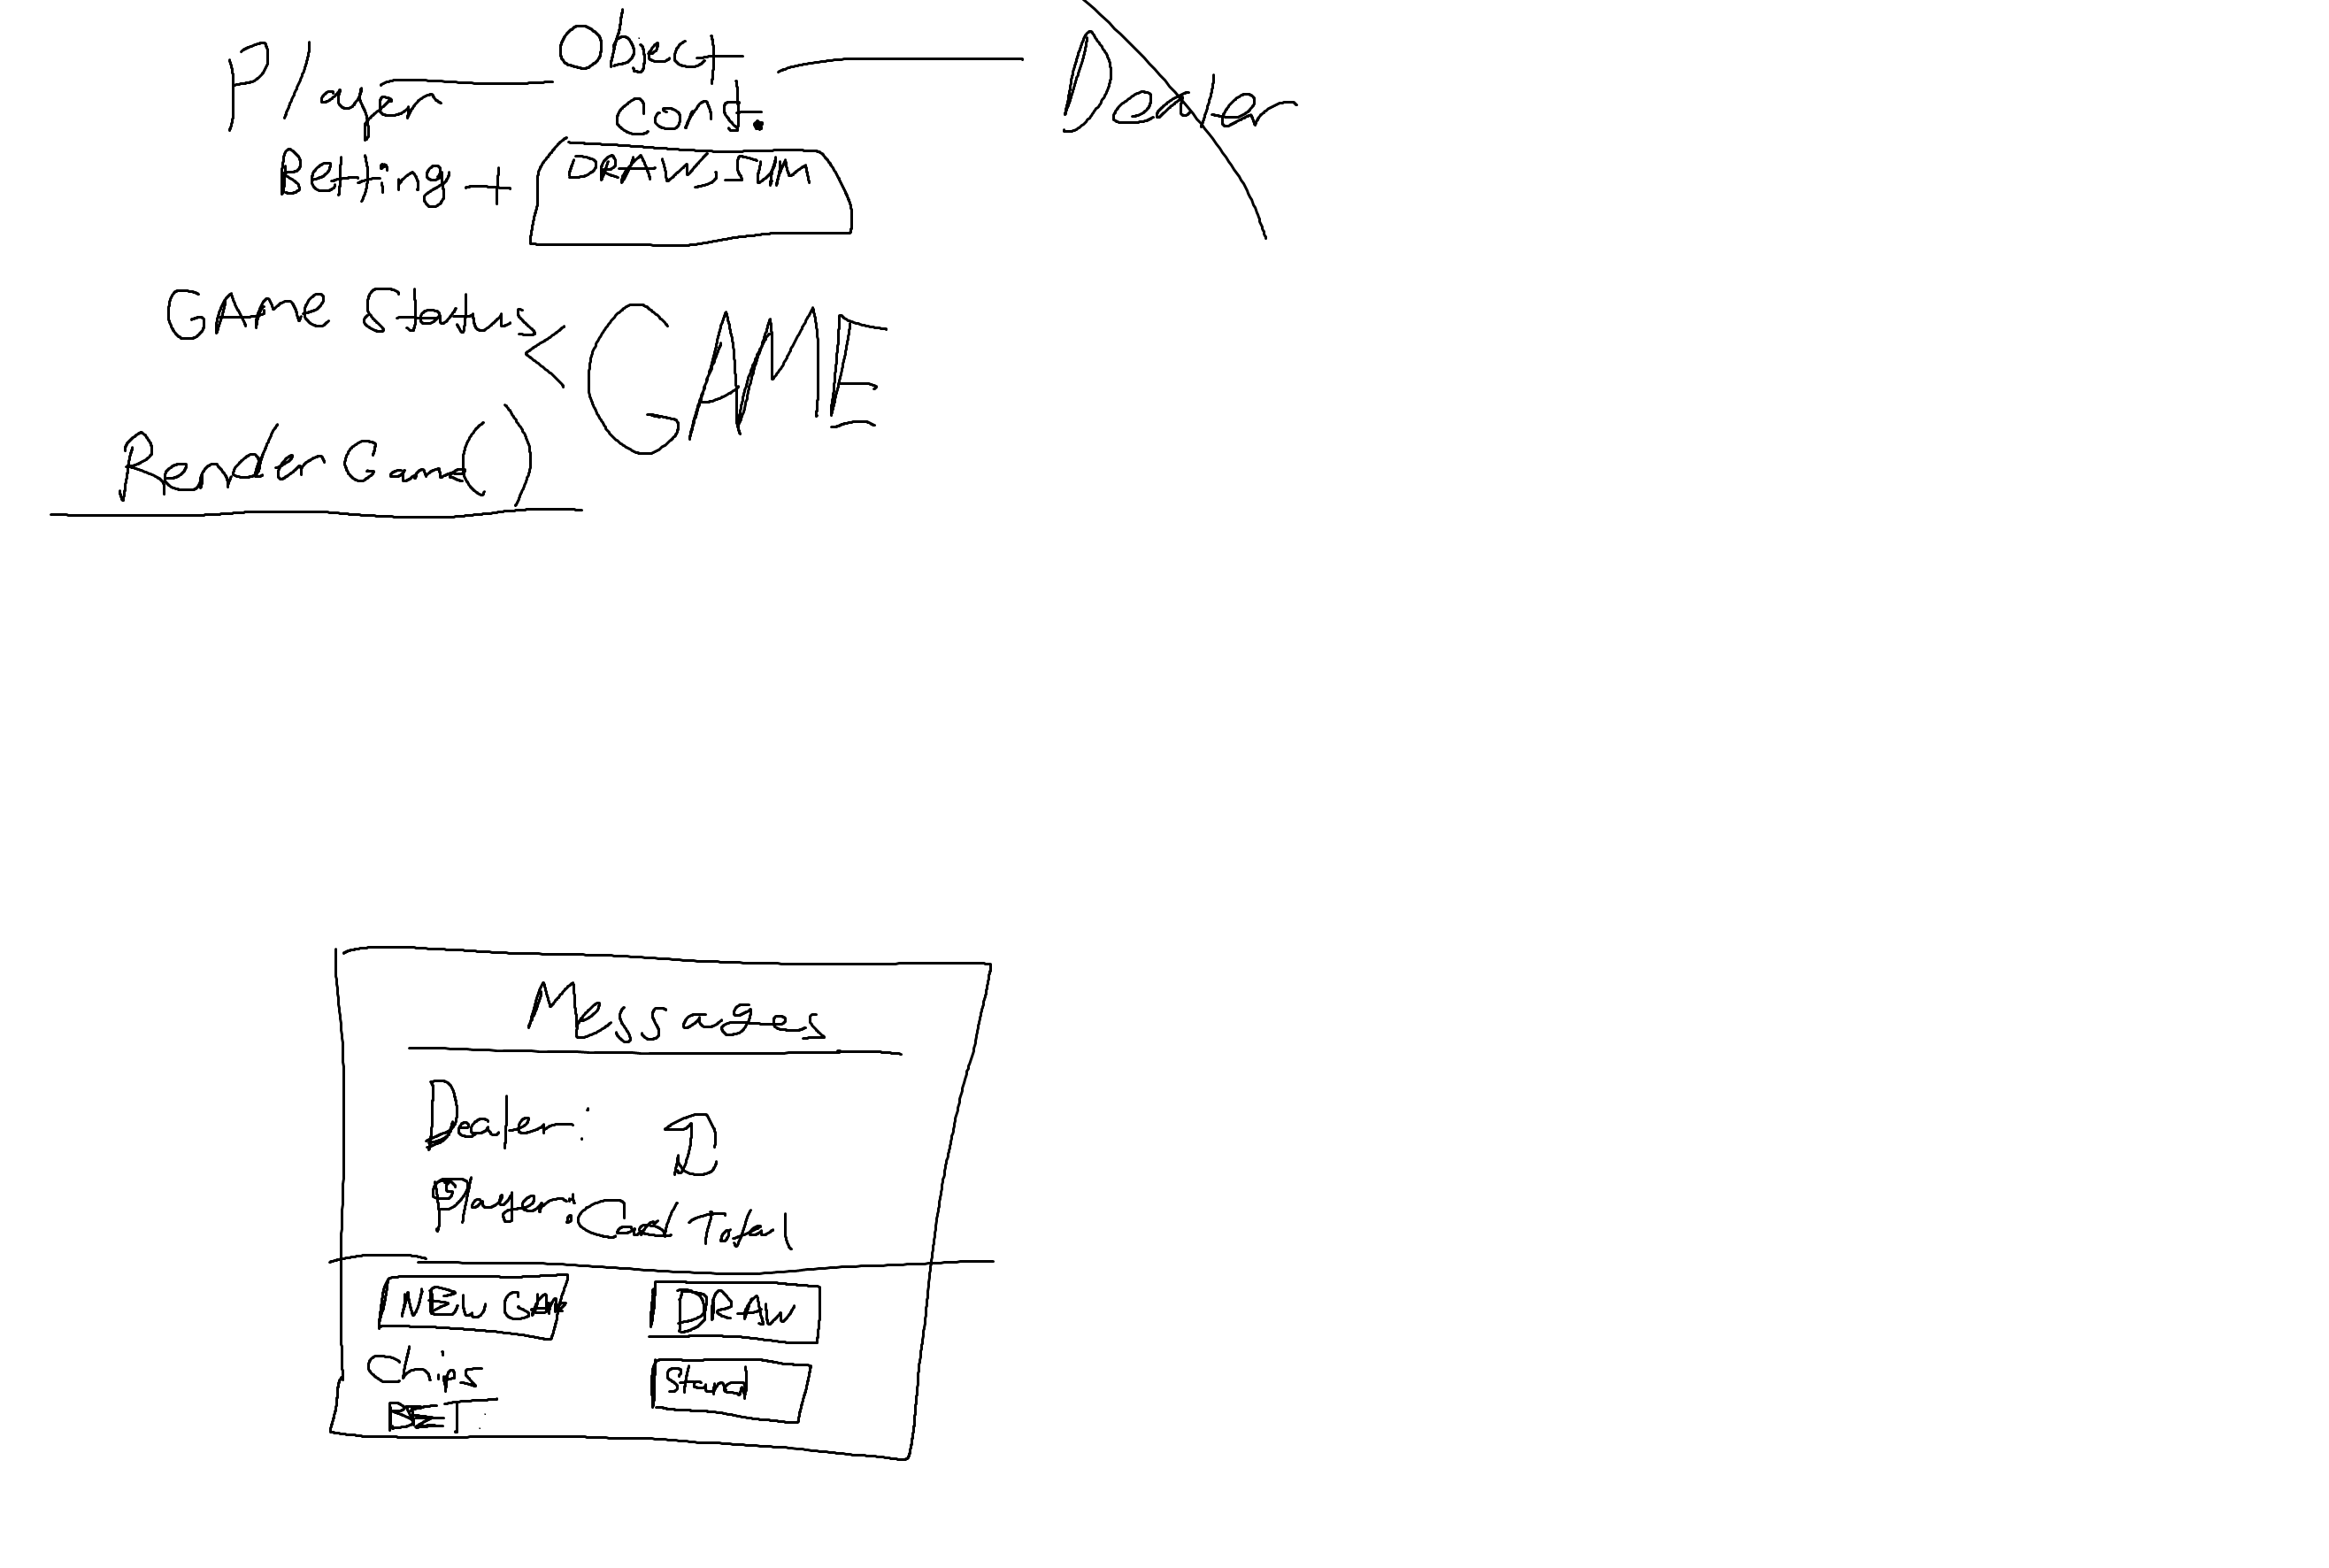 Player Object Dealer
Cont.
Betting + DRAW, SUM
GAME Status < GAME
Render Game()
Messages
Dealer:
Player: Card Total
NEW GAME DRAW
Chips Stand
BET